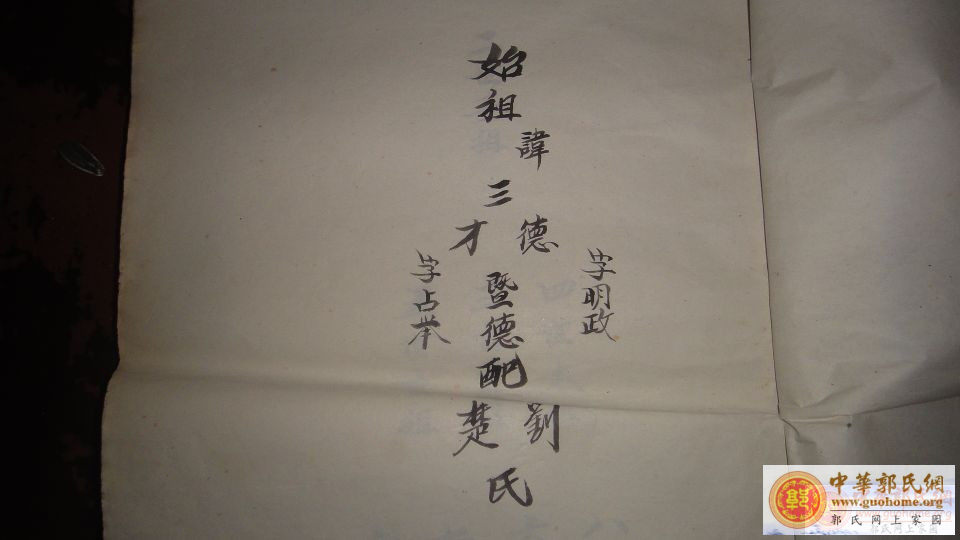 始祖
諱
三
德
才
字明政
字占举
暨德配
劉
楚
氏
中華郭氏網
www.guohome.org
郭氏网上家园